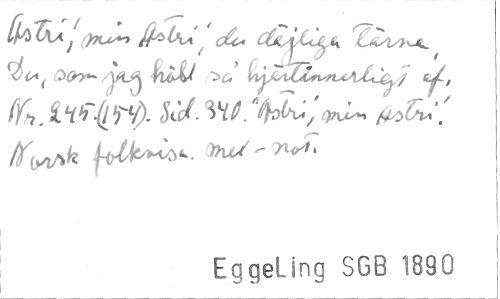 Astri', min Astri', du däjliga tärna,
Du, som jag höll så hjertinnerligt af,
Nr. 245.(154). Sid. 340. "Astri', min Astri'.
Norsk folkvisa. mel-not.
EggeLing SGB 1890